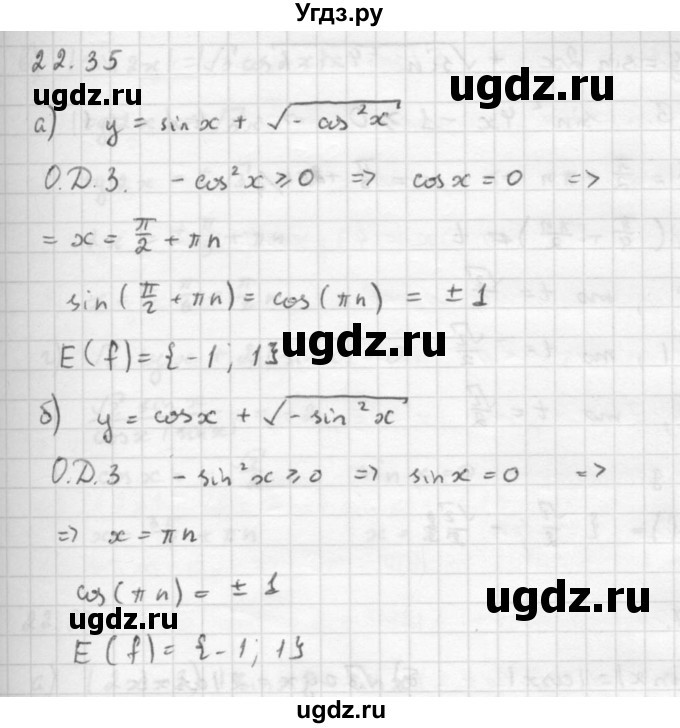 Угдз.ру
22.35
ugdz.ru
ugdz.ru
а) y = sinx + √(-cos²x)
О.Д.З. -cos²x ≥ 0 => cosx = 0 =>
= x = π/2 + πn
sin(π/2 + πn) = cos(πn) = ±1
ugdz.ru
E(f) = {-1; 1}
б) y = cosx + √(-sin²x)
О.Д.З -sin²x ≥ 0 => sinx = 0 =>
=> x = πn
cos(πn) = ±1
ugdz.ru
ugdz.ru
E(f) = {-1; 1}
ugdz.ru
ugdz.ru